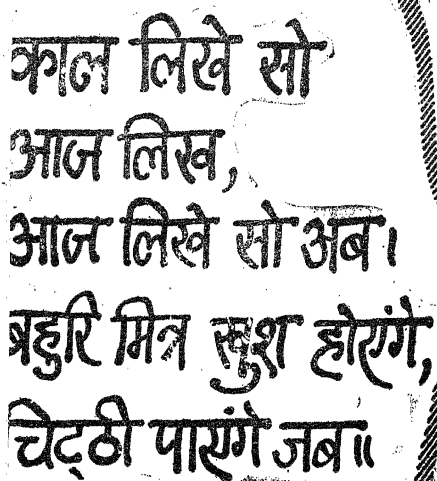 काल लिखे सो
आज लिख,
आज लिखे सो अब।
बहुरि मित्र खुश होएंगे,
चिट्ठी पाएंगे जब॥